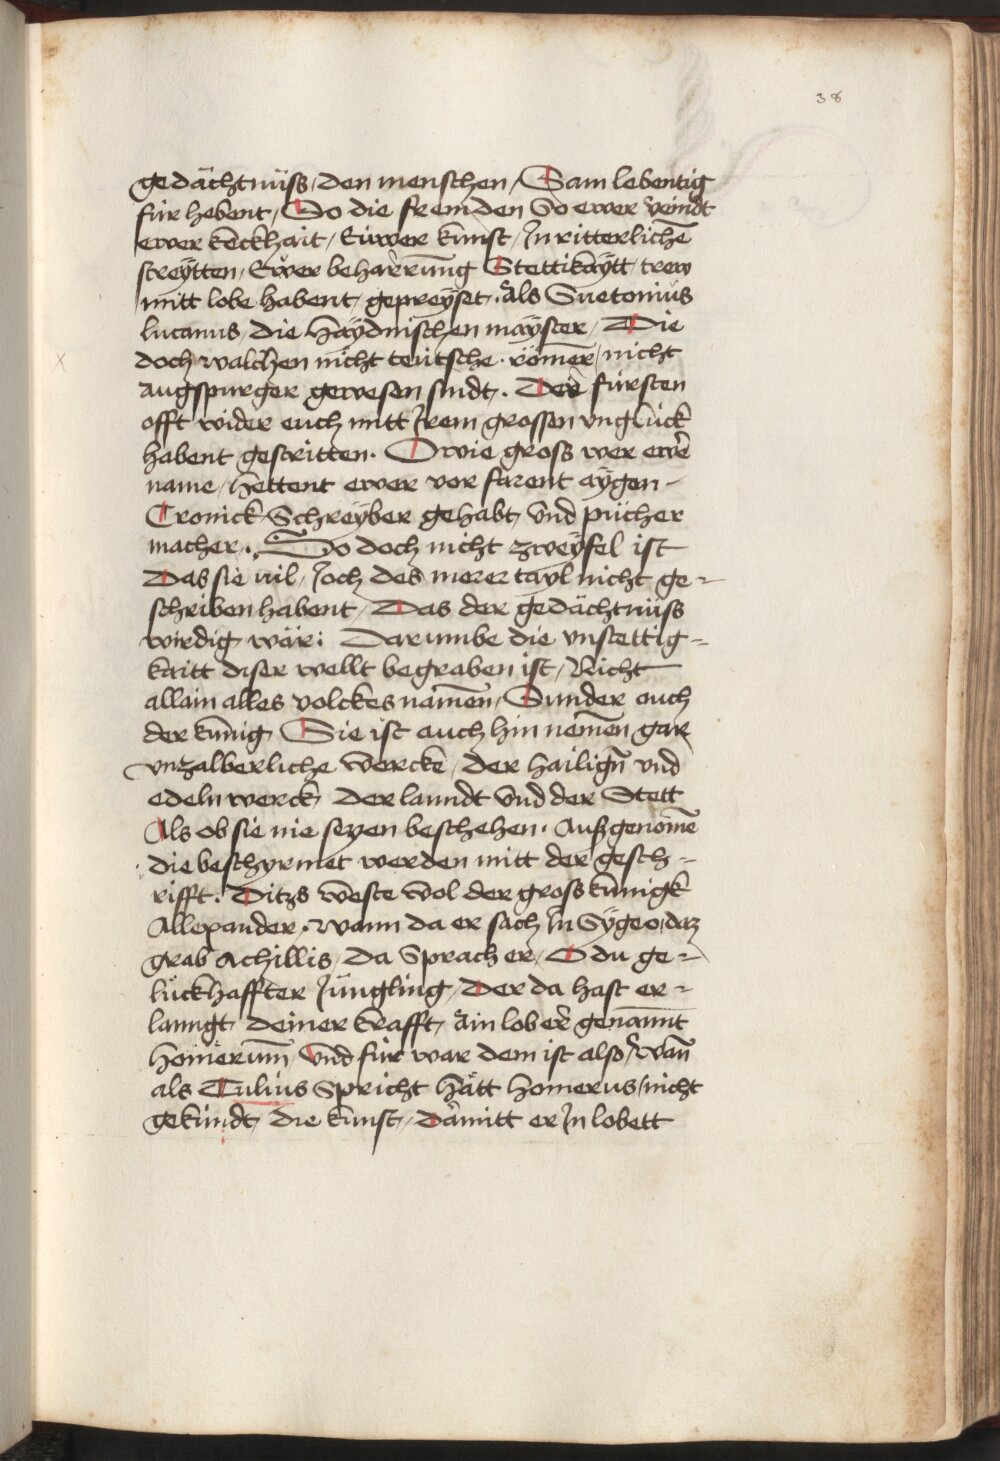 38
gedächtnüss / den menschen / Sam lebentig
für hebent / So die fremden So ewer veindt
ewer keckhait / Eüwer kunst / In ritterlichē
streÿtten / Ewer beharrung Stettikaÿtt / trew
mitt lobe habent gepreÿset . Als Suetonius
lucanus / die haÿdnischen maÿster / Die
doch walchen nicht teütsche . römer / nicht
augspurger gewesen sindt . Der fürsten
offt wider euch mitt Irem grossen vnglück
habent gestritten . O wie gross wer ewer̄
name / hettent ewer vor farent aÿgen -
Cronick Schreÿber gehabt / vnd pücher
macher . So doch nicht zweÿfel ist
Das sie vil / Joch des merer tayl nicht ge=
schriben habent / Das der gedächtnüss
wirdig wär : Darumbe die vnstettig=
kaitt diser wellt begraben ist / Nicht
allain alles volckes namēn / Sunder auch
der künig / Sie ist auch hin nemēn gar
vnzalberliche wercke / der hailigñ vnd
edeln werck / der lanndt vnd der Stett
Als ob sie nie seyen beschehen . Außgenomē
die beschyrmet werden mitt der gesch=
rifft . Ditzs weste wol der gross künigk
Allexander . wann da er sach In Sÿgeo / daz
grab Achillis / Da Sprach er / O du ge=
lückhaffter Jüngling / Der da hast er=
lanngt / deiner krafft / Ain lober̄ genannt
homerum / Vnd für war dem ist also / Wañ
als Tulius Spricht hätt homerus / nicht
gekündt / die kunst / Damitt er In lobett